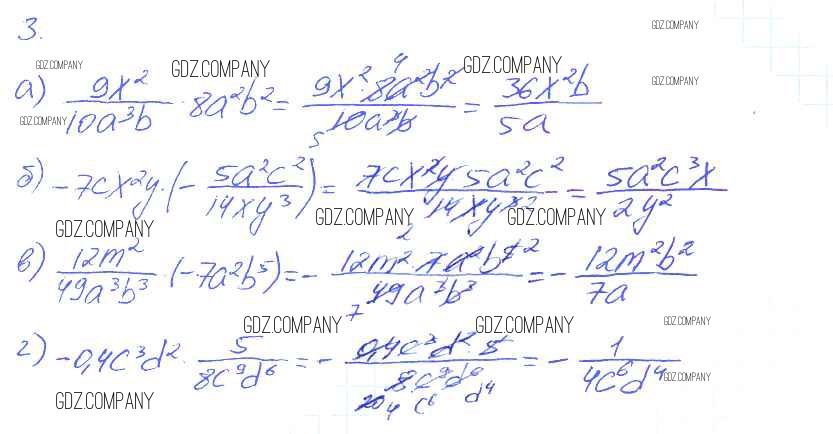 3.
GDZ.COMPANY
GDZ.COMPANY GDZ.COMPANY GDZ.COMPANY
а) 9x²/10a³b · 8a²b² = 9x² · 8a²b²/10a³b = 36x²b/5a
GDZ.COMPANY
GDZ.COMPANY
б) -7cx²y · (-5a²c²/14xy³) = 7cx²y 5a²c²/14xy³ = 5a²c³x/2y²
GDZ.COMPANY GDZ.COMPANY GDZ.COMPANY
в) 12m²/49a³b³ · (-7a²b⁵) = -12m² · 7a²b⁵/49a³b³ = -12m²b²/7a
GDZ.COMPANY GDZ.COMPANY GDZ.COMPANY
г) -0,4c³d² · 5/8c⁹d⁶ = -0,4c³d² · 5/8c⁹d⁶ = -1/4c⁶d⁴
GDZ.COMPANY GDZ.COMPANY